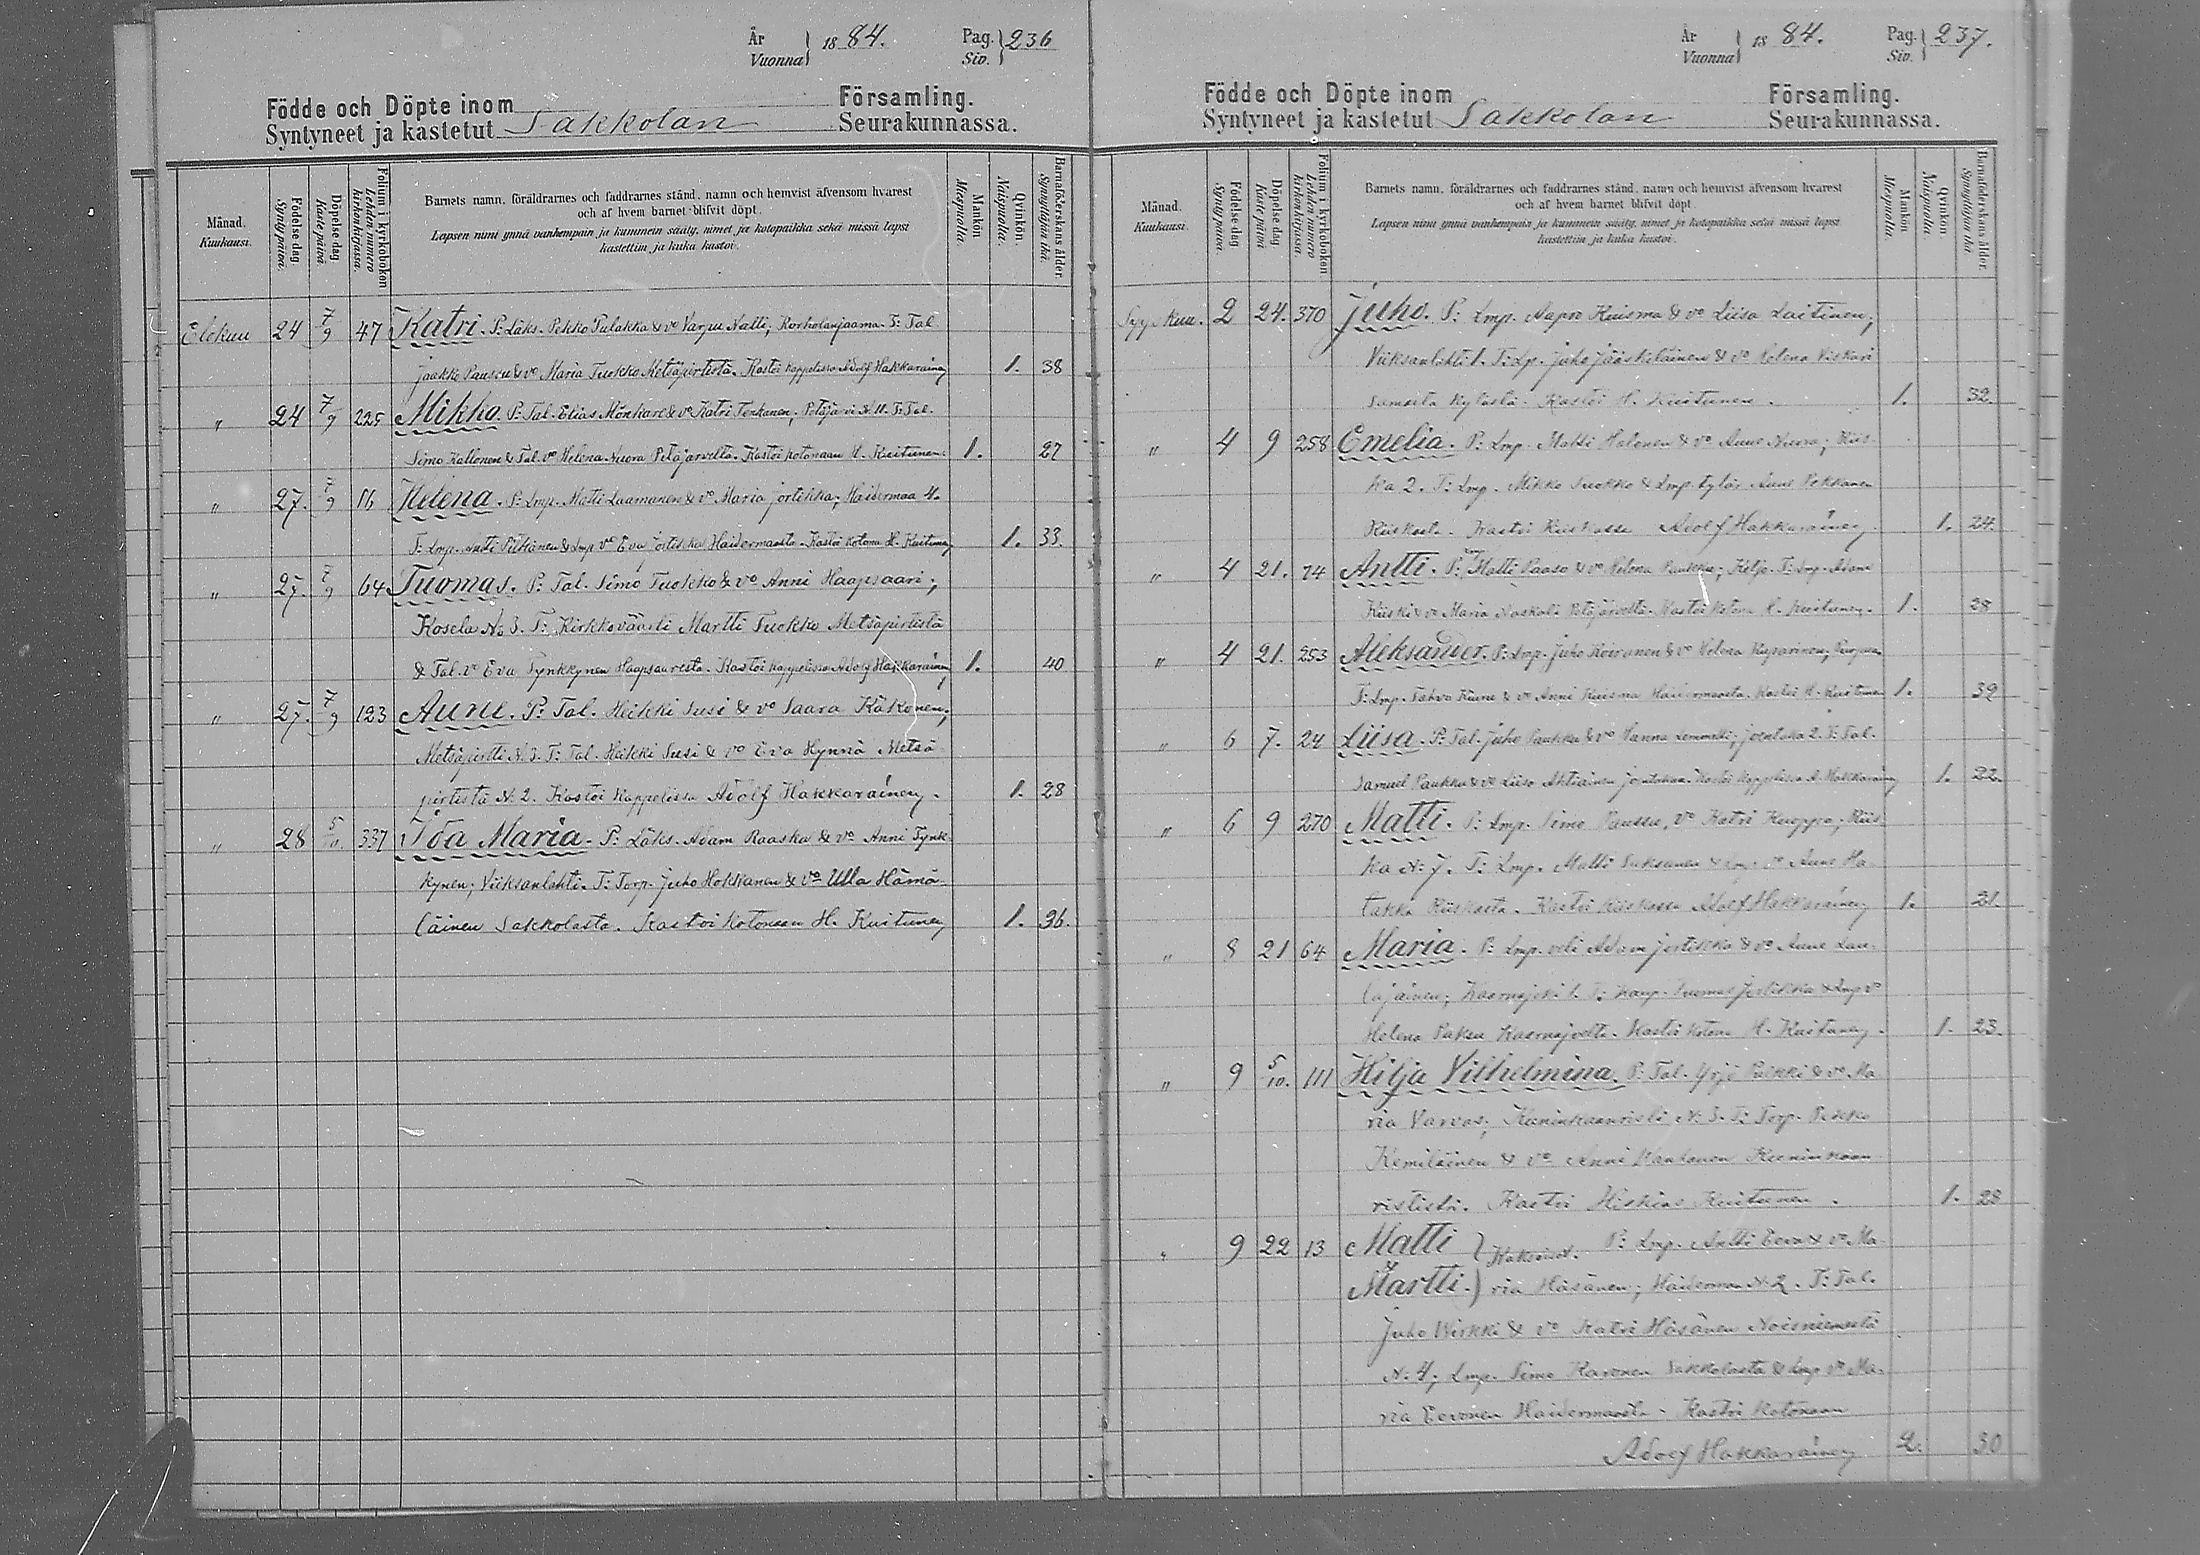 År
Vuonna } 1884. Pag.
Siv. } 236
Födde och Döpte inom Församling.
Syntyneet ja kastetut Sakkolan Seurakunnassa.
Månad.
Kuukausi.
Födelse dag.
Syntypäivä.
Döpelse dag
Kastepäivä
Folium i kyrkoboken
Lehden numero
kirkonkirjassa.
Barnets namn, föräldrarnes och faddrarnes stånd, namn och hemvist äfvensom hvarest
och af hvem barnet blifvit döpt.
Lapsen nimi ynnä vanhempain ja kummein sääty, nimet ja kotopaikka sekä missä lapsi
kastettiin ja kuka kastoi.
Mankön
Miespuolia.
Qvinkön.
Naispuolia.
Barnaföderskans ålder.
Synnyttäjän ikä.
Elokuu 24 7/9 47 Katri. P: Läks. Pekko Pulakka & vo Varpu Natti; Korholanjaama. T: Tal.
Jaakko Paussu & vo Maria Tuokko Metsäpirtistä. Kastoi kappelissa Adolf Hakkarainen 1. 38
" 24 7/9 225 Mikko. P: Tal. Elias Mönkäre & vo Katri Tenkanen; Petäjärvi N 11. T: Tal.
Simo Kallonen & Tal. vo Helena Nuora Petäjärveltä. Kastoi kotonaan H. Kuitunen. 1. 27
" 27. 7/9 16 Helena. P: Lmp. Matti Laamanen & vo Maria Jortikka; Haidermaa 4.
T: Lmp. Antti Pitkänen & Lmp vo Eva Jortikka Haidermaasta. Kastoi kotona H. Kuitunen 1. 33.
" 27. 7/9 64 Tuomas. P: Tal. Simo Tuokko & vo Anni Haapsaari;
Kosela No 3. T: Kirkkoväärti Martti Tuokko Metsäpirtistä
& Tal. vo Eva Tynkkynen Haapsaaresta. Kastoi kappelissa Adolf Hakkarainen 1. 40
" 27. 7/9 123 Aune. P: Tal. Heikki Susi & vo Saara Käkönen;
Metsäpirtti N. 3. T: Tal. Heikki Susi & vo Eva Hynnä Metsä-
pirtistä N: 2. Kastoi Kappelissa Adolf Hakkarainen. 1. 28
" 28 5/11. 337 Ida Maria. P: Läks. Adam Raaska & vo Anni Tynk-
kynen; Viiksanlahti. T: Torp. Juho Hokkanen & vo Ulla Hämä-
läinen Sakkolasta. Kastoi kotonaan H. Kuitunen 1. 36.
År
Vuonna } 1884. Pag.
Siv. } 237.
Födde och Döpte inom Församling.
Syntyneet ja kastetut Sakkolan Seurakunnassa.
Månad.
Kuukausi.
Födelse dag
Syntypäivä.
Döpelse dag
Kastepäivä
Folium i kyrkoboken
Lehden numero
kirkonkirjassa.
Barnets namn, föräldrarnes och faddrarnes stånd, namn och hemvist äfvensom hvarest
och af hvem barnet blifvit döpt.
Lapsen nimi ynnä vanhempain ja kummein sääty, nimet ja kotopaikka sekä missä lapsi
kastettiin ja kuka kastoi.
Mankön
Miespuolia.
Qvinkön.
Naispuolia.
Barnaföderskans ålder.
Synnyttäjän ikä.
Syyskuu. 2 24. 370 Juho. P: Lmp. Aapro Kuisma & vo Liisa Laitinen;
Viiksanlahti 1. T: Lp. Juho Jääskeläinen & vo Helena Viskari
samasta kylästä. Kastoi H. Kuitunen. 1. 32.
" 4 9 258 Emelia. P: Lmp. Matti Halonen & vo Anne Nuora; Riis-
ka 2. T: Lmp. Mikko Tuokko & Lmp. tytär Anne Pekkanen
Riiskasta. Kastoi Riiskassa Adolf Hakkarainen. 1. 24.
" 4 21. 74 Antti. P: Matti Paaso & vo Helena Paukku; Kelja. T: Lmp. Adam
Kiiski & vo Maria Naskali Petäjärveltä. Kastoi kotona H. Kuitunen. 1. 28
" 4 21. 253 Aleksander. P: Lmp. Juho Koivunen & vo Helena Kuparinen;
T: Lmp. Pahvo Kiuru & vo Anni Kuisma Haidermaasta. Kastoi H. Kuitunen 1. 39
" 6 7. 24 Liisa. P: Tal. Juho Paukku & vo Hanna Lemmetti; Joentaka 2. T: Tal.
Samuel Paukku & vo Liisa Ahtiainen Joentakaa. Kastoi kappelissa A. Hakkarainen 1. 22.
" 6 9 270 Matti. P: Lmp. Simo Paussu, vo Katri Kuoppa; Riis-
ka N: 7. T: Lmp. Matti Suksanen & Lmp. vo Anne Ha-
takka Riiskasta. Kastoi Riiskassa Adolf Hakkarainen 1. 21.
" 8 21 64 Maria. P: Lmp. veli Adam Jortikka & vo Anne Lau-
lajainen; Kaarnajoki 1. T: Kaup. Tuomas Jortikka & Lmp vo
Helena Paksu Kaarnajoelta. Kastoi kotona H. Kuitunen. 1. 23.
" 9 5/10. 111 Hilja Vilhelmina. P: Tal. Yrjö Pulkki & vo Ma-
ria Varvas; Kuninkaanristi N: 3. T: Torp. Pekko
Kemiläinen & vo Anni Kuninkaan-
rististä. Kastoi Hiskias Kuitunen. 1. 28
" 9 22 13 Matti } Kaksoiset. P: Lmp. Antti Eeva & vo Ma-
Martti. } ria Häsänen; Haidermaa N: 2. T: Tal.
Juho Wirkki & vo Katri Häsänen Noisniemestä
N: 4; Lmp. Simo Karonen Sakkolasta & Lmp vo Ma-
ria Eevonen Haidermaasta. Kastoi kotonaan
Adolf Hakkarainen 2. 30